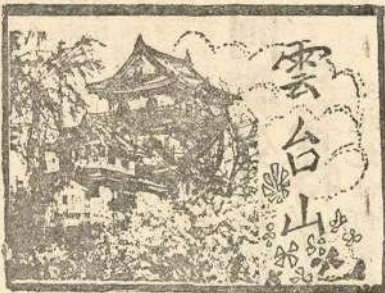 雲台山